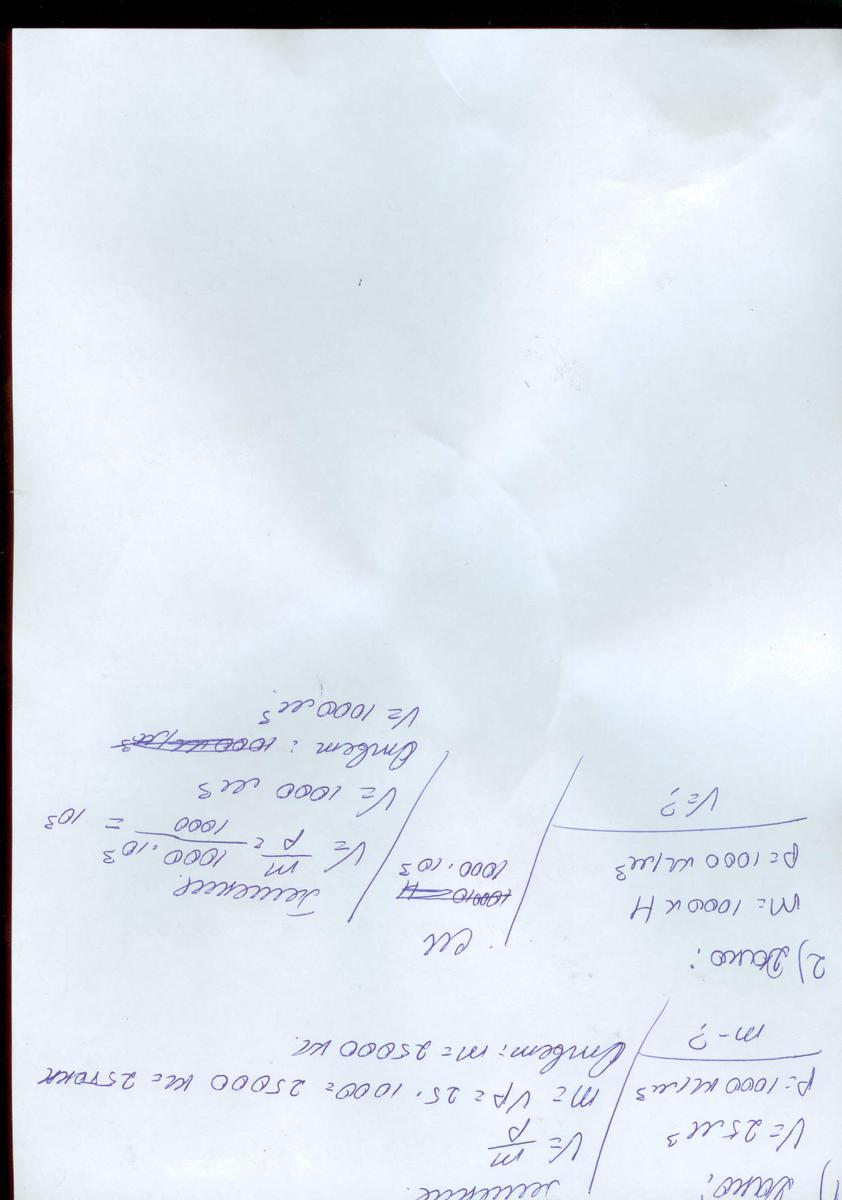 1) Дано:
V=25 м³
ρ=1000 кг/м³
m-?
Решение.
V= m/ρ
m= Vρ= 25·1000= 25000 кг= 25 тонн
Ответ: m= 25000 кг.
2) Дано:
m= 1000 к Н
ρ=1000 кг/м³
V=?
СИ
1000·10³
Решение.
V= m/ρ = 1000·10³/1000 = 10³
V= 1000 м³
Ответ: 1000 кг/м³
V= 1000 м³